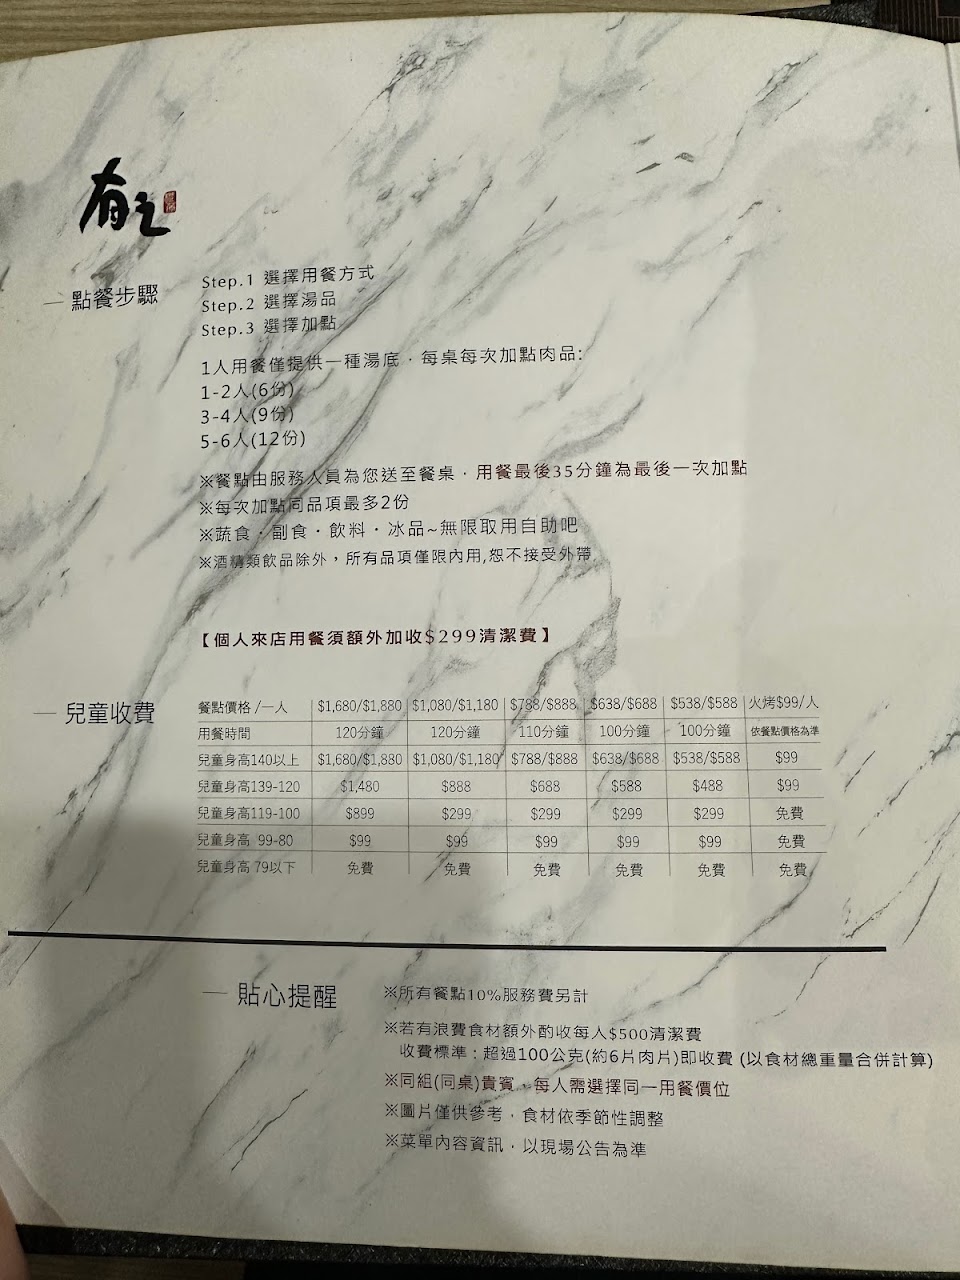 有之
點餐步驟
Step.1 選擇用餐方式
Step.2 選擇湯品
Step.3 選擇加點
1人用餐僅提供一種湯底，每桌每次加點肉品:
1-2人(6份)
3-4人(9份)
5-6人(12份)
※餐點由服務人員為您送至餐桌，用餐最後35分鐘為最後一次加點
※每次加點同品項最多2份
※蔬食・副食・飲料・冰品~無限取用自助吧
※酒精類飲品除外，所有品項僅限內用,恕不接受外帶
【個人來店用餐須額外加收$299清潔費】
兒童收費
餐點價格 /一人 $1,680/$1,880 $1,080/$1,180 $788/$888 $638/$688 $538/$588 火烤$99/人
用餐時間 120分鐘 120分鐘 110分鐘 100分鐘 100分鐘 依餐點價格為準
兒童身高140以上 $1,680/$1,880 $1,080/$1,180 $788/$888 $638/$688 $538/$588 $99
兒童身高139-120 $1,480 $888 $688 $588 $488 $99
兒童身高119-100 $899 $299 $299 $299 $299 免費
兒童身高 99-80 $99 $99 $99 $99 $99 免費
兒童身高 79以下 免費 免費 免費 免費 免費 免費
貼心提醒
※所有餐點10%服務費另計
※若有浪費食材額外酌收每人$500清潔費
收費標準：超過100公克(約6片肉片)即收費 (以食材總重量合併計算)
※同組(同桌)貴賓，每人需選擇同一用餐價位
※圖片僅供參考，食材依季節性調整
※菜單內容資訊，以現場公告為準